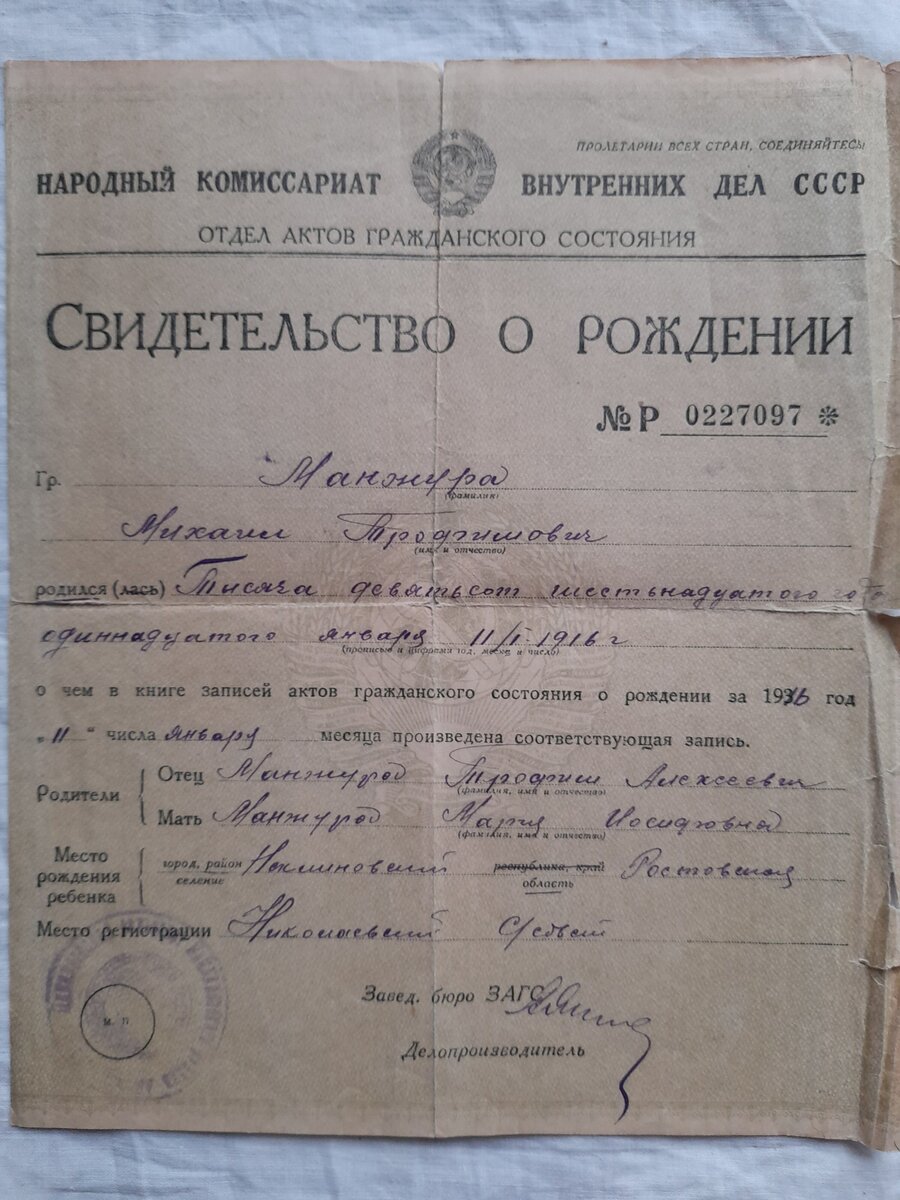 ПРОЛЕТАРИИ ВСЕХ СТРАН, СОЕДИНЯЙТЕСЬ
НАРОДНЫЙ КОМИССАРИАТ ВНУТРЕННИХ ДЕЛ СССР
ОТДЕЛ АКТОВ ГРАЖДАНСКОГО СОСТОЯНИЯ
СВИДЕТЕЛЬСТВО О РОЖДЕНИИ
№ Р 0227097 *
Гр. Манжура
(фамилия)
Михаил Трофимович
(имя и отчество)
родился (лась) Тисяча девятьсот шестьнадцатого года
одиннадцатого января 11/I 1916 г
(прописью и цифрами год, месяц и число)
о чем в книге записей актов гражданского состояния о рождении за 1916 год
„ 11 “ числа января месяца произведена соответствующая запись.
Родители
Отец Манжура Трофим Алексеевич
(фамилия, имя и отчество)
Мать Манжура Мария Иосифовна
(фамилия, имя и отчество)
Место рождения ребенка
город, район селение Неклиновский республика, край область Ростовская
Место регистрации Николаевский с/совет
Завед. бюро ЗАГС
м. п
Делопроизводитель